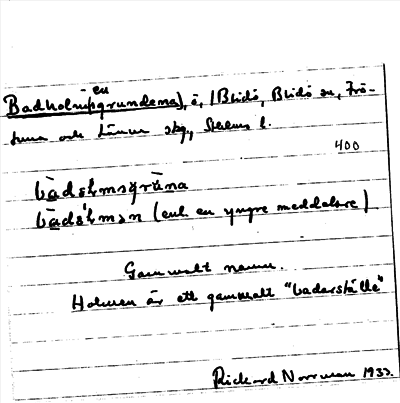 en
Badholm(sgrundema), ö, (Blidö, Blidö sn, Frö-
tuna och Länna skg., Sthlms l.
400
bàdsɷmsgrúna
bàdsɷmən (enl. en yngre meddelare)
Gammalt namn.
Holmen är ett gammalt "badarställe"
Rickard Norrman 1933.